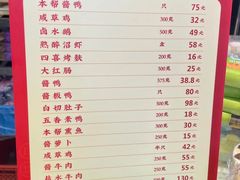 本帮酱鸭 只 75元
咸草鸡 300克 32元
卤水鹅 500克 49元
熟醉沼虾 盒 58元
四喜烤麸 200克 16元
大红肠 300克 25元
酱鸭 575克 38.8元
酱板鸭 只 80元
白切肚子 300克 98元
五香素鸭 200克 18元
本帮熏鱼 250克 30元
酱萝卜 200克 15元
咸草鸡 半只 42元
酱牛肉 250克 55元
盐水牛肉 250克